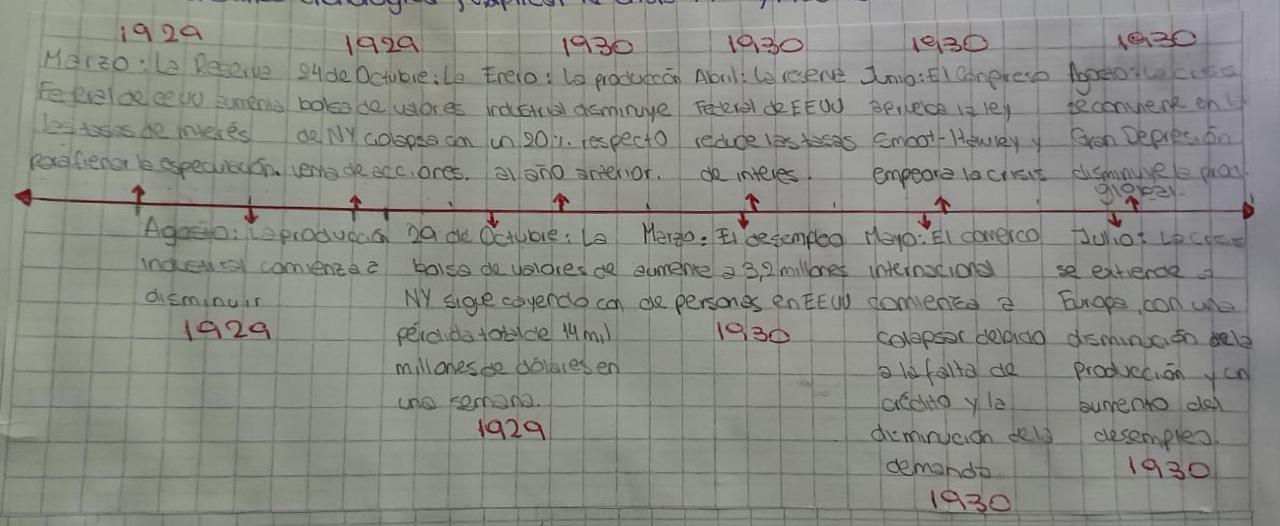 1929
Marzo: La Reserva
Federal de EEUU aumenta
las tasas de interés
para frenar la especulación.
1929
24 de Octubre: La
bolsa de valores
de NY colapsa con
venta de acciones.
1930
Enero: La producción
industrial disminuye
un 20% respecto
al año anterior.
1930
Abril: La reserva
Federal de EEUU
reduce las tasas
de interes.
1930
Junio: El Congreso
la ley
Smoot-Hawley y
empeora la crisis
1930
Agosto: La crisis
se convierte en la
Gran Depresión
disminuye la prod.
global.
Agosto: La producción
industrial comienza a
disminuir
1929
29 de Octubre: La
bolsa de valores de
NY sigue cayendo con
pérdida total de 14 mil
millones de dólares en
una semana.
1929
Marzo: El desempleo
aumenta a 3,2 millones
de personas en EEUU
1930
Mayo: El comercio
internacional
comienza a
colapsar debido
a la falta de
crédito y la
disminución de la
demanda.
1930
Julio: La crisis
se extiende a
Europa, con una
disminución de la
producción y un
aumento del
desempleo.
1930